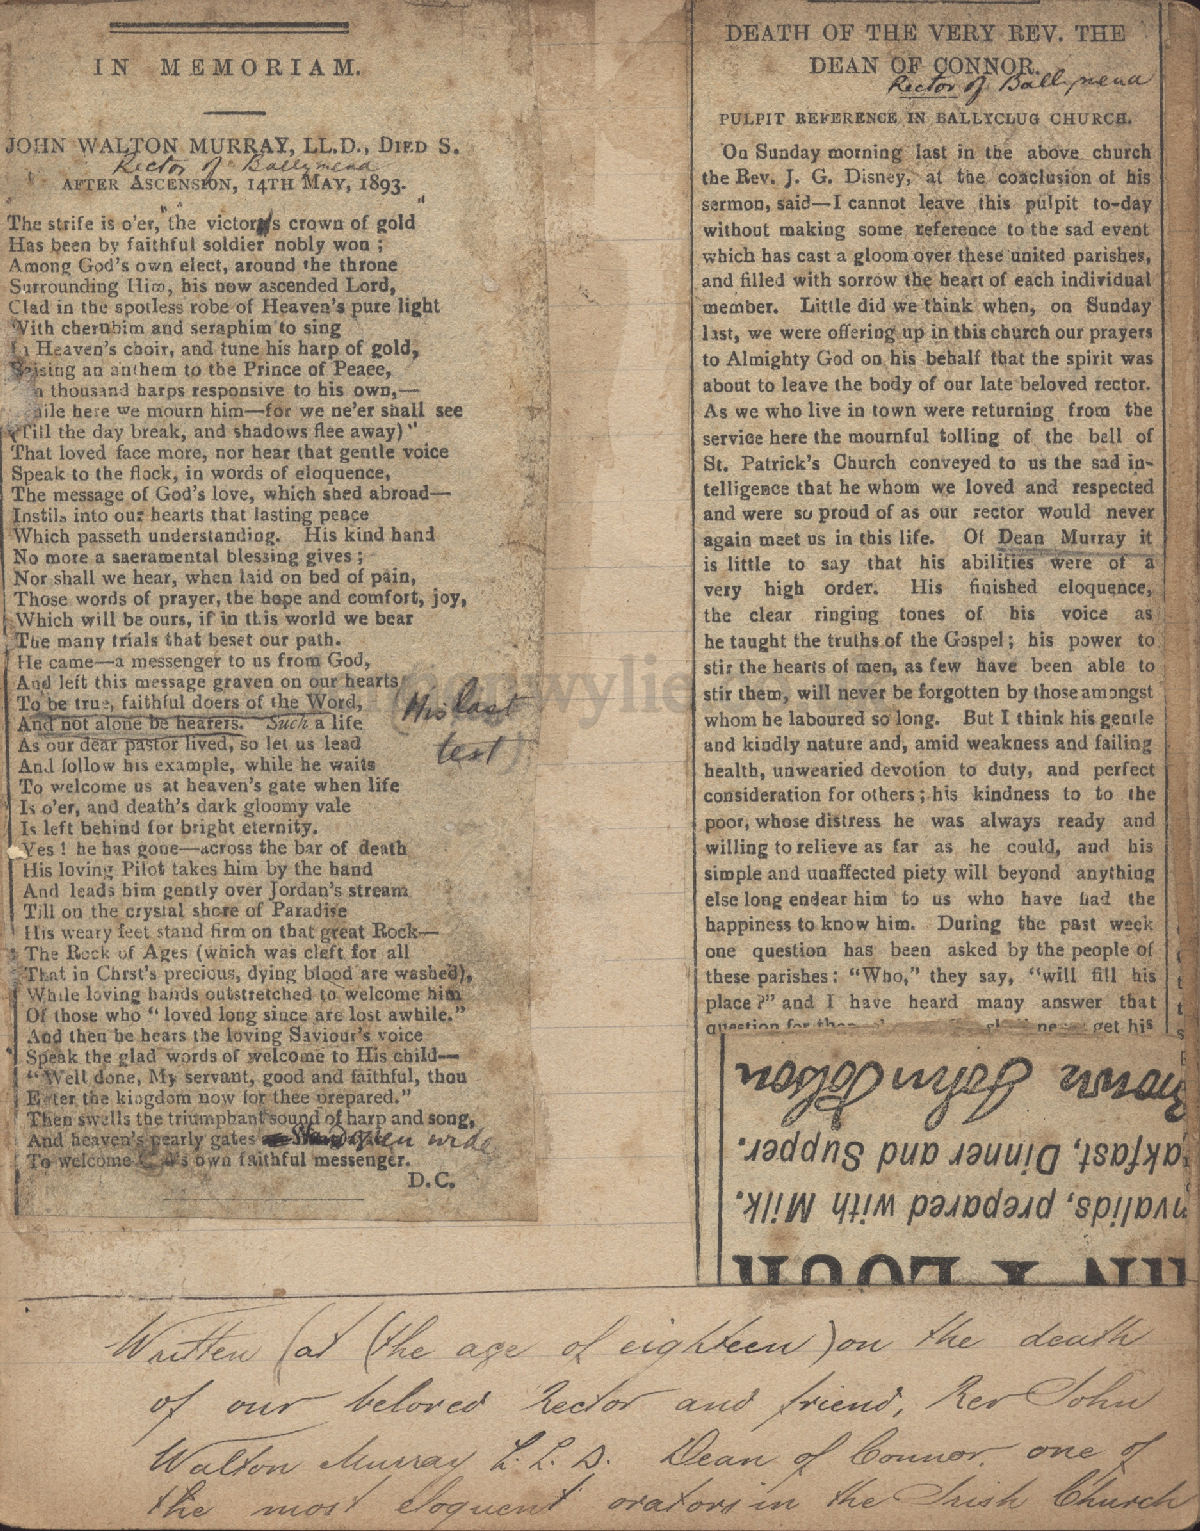 IN MEMORIAM.
JOHN WALTON MURRAY, LL.D., DIED S.
Rector of Ballymena
AFTER ASCENSION, 14TH MAY, 1893.
The strife is o'er, "the victor's crown of gold"
Has been by faithful soldier nobly won;
Among God's own elect, around the throne
Surrounding Him, his now ascended Lord,
Clad in the spotless robe of Heaven's pure light
With cherubim and seraphim to sing
In Heaven's choir, and tune his harp of gold,
Raising an anthem to the Prince of Peace,
thousand harps responsive to his own,—
while here we mourn him—for we ne'er shall see
(Till the day break, and shadows flee away)"
That loved face more, nor hear that gentle voice
Speak to the flock, in words of eloquence,
The message of God's love, which shed abroad—
Instils into our hearts that lasting peace
Which passeth understanding. His kind hand
No more a sacramental blessing gives;
Nor shall we hear, when laid on bed of pain,
Those words of prayer, the hope and comfort, joy,
Which will be ours, if in this world we bear
The many trials that beset our path.
He came—a messenger to us from God,
And left this message graven on our hearts
To be true, faithful doers of the Word,
And not alone be hearers. Such a life
(His last
text)
As our dear pastor lived, so let us lead
And follow his example, while he waits
To welcome us at heaven's gate when life
Is o'er, and death's dark gloomy vale
Is left behind for bright eternity.
Yes! he has gone—across the bar of death
His loving Pilot takes him by the hand
And leads him gently over Jordan's stream
Till on the crystal shore of Paradise
His weary feet stand firm on that great Rock—
The Rock of Ages (which was cleft for all
That in Chrst's precious, dying blood are washed),
While loving hands outstretched to welcome him
Of those who "loved long since are lost awhile."
And then be hears the loving Saviour's voice
Speak the glad words of welcome to His child—
"Well done, My servant, good and faithful, thou
Enter the kingdom now for thee prepared."
Then swells the triumphant sound of harp and song,
And heaven's pearly gates open wide
To welcome God's own faithful messenger.
D.C.
DEATH OF THE VERY REV. THE
DEAN OF CONNOR.
Rector of Ballymena
PULPIT REFERENCE IN BALLYCLUG CHURCH.
On Sunday morning last in the above church
the Rev. J. G. Disney, at the conclusion of his
sermon, said—I cannot leave this pulpit to-day
without making some reference to the sad event
which has cast a gloom over these united parishes,
and filled with sorrow the heart of each individual
member. Little did we think when, on Sunday
last, we were offering up in this church our prayers
to Almighty God on his behalf that the spirit was
about to leave the body of our late beloved rector.
As we who live in town were returning from the
service here the mournful tolling of the bell of
St. Patrick's Church conveyed to us the sad in-
telligence that he whom we loved and respected
and were so proud of as our rector would never
again meet us in this life. Of Dean Murray it
is little to say that his abilities were of a
very high order. His finished eloquence,
the clear ringing tones of his voice as
he taught the truths of the Gospel; his power to
stir the hearts of men, as few have been able to
stir them, will never be forgotten by those amongst
whom he laboured so long. But I think his gentle
and kindly nature and, amid weakness and failing
health, unwearied devotion to duty, and perfect
consideration for others; his kindness to to the
poor, whose distress he was always ready and
willing to relieve as far as he could, and his
simple and unaffected piety will beyond anything
else long endear him to us who have had the
happiness to know him. During the past week
one question has been asked by the people of
these parishes: "Who," they say, "will fill his
place?" and I have heard many answer that
question for get his
John Tolson
akfast, Dinner and Supper.
nvalids, prepared with Milk.
Written (at (the age of eighteen) on the death
of our beloved Rector and friend, Rev John
Walton Murray L.L.D. Dean of Connor. one of
the most eloquent orators in the Irish Church